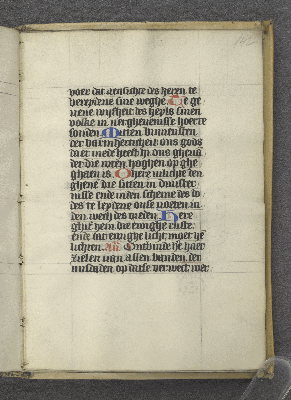 voer dat aensichte des heren te
bereydene sine weghe. Te ge
uene wysheit des heyls sinen
volke in verghevenisse hoerre
sonden Mitten binnensten
der barmherticheit ons gods
daer mede heeft hi ons ghevi
der die wten hoghen op ghe
ghaen is. O here verlichte den
ghene die sitten in duuster
nisse ende inden scheme des do
des te leydene onse voeten in
den wech des vreden. Here
ghif hem die ewighe ruste
ende dat ewighe licht moet he
lichten. An. Ontbinde he haer
zielen van allen banden der
misdaden op datse verwect wer